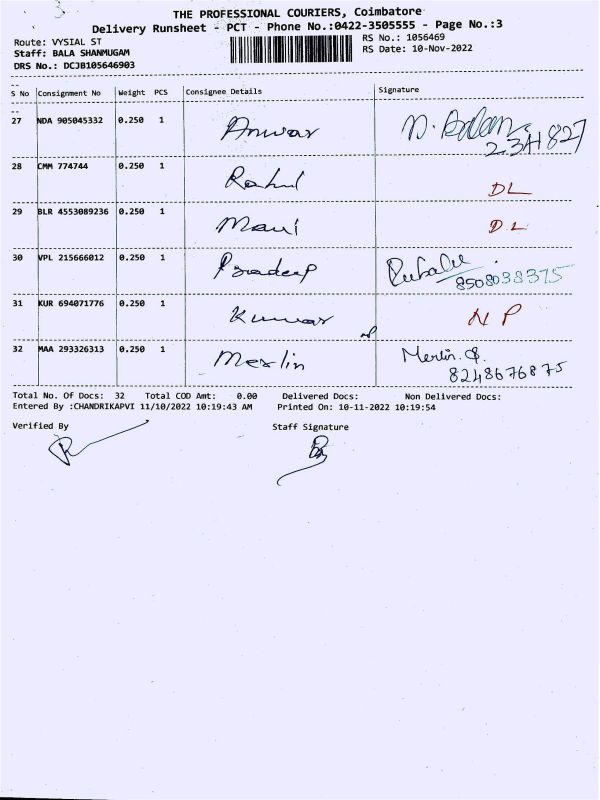 3
THE PROFESSIONAL COURIERS, Coimbatore
Delivery Runsheet - PCT - Phone No.:0422-3505555 - Page No.:3
Route: VYSIAL ST
RS No.: 1056469
Staff: BALA SHANMUGAM
RS Date: 10-Nov-2022
DRS No.: DCJB105646903
S No Consignment No Weight PCS Consignee Details Signature
27 NDA 905045332 0.250 1 Anwar
28 CMM 774744 0.250 1 Rahul DL
29 BLR 4553089236 0.250 1 Mani DL
30 VPL 215666012 0.250 1 Pradeep
8508038375
31 KUR 694071776 0.250 1 Kumar NP
32 MAA 293326313 0.250 1 Merlin Merlin.
8248676875
Total No. Of Docs: 32 Total COD Amt: 0.00 Delivered Docs: Non Delivered Docs:
Entered By :CHANDRIKAPVI 11/10/2022 10:19:43 AM Printed On: 10-11-2022 10:19:54
Verified By Staff Signature